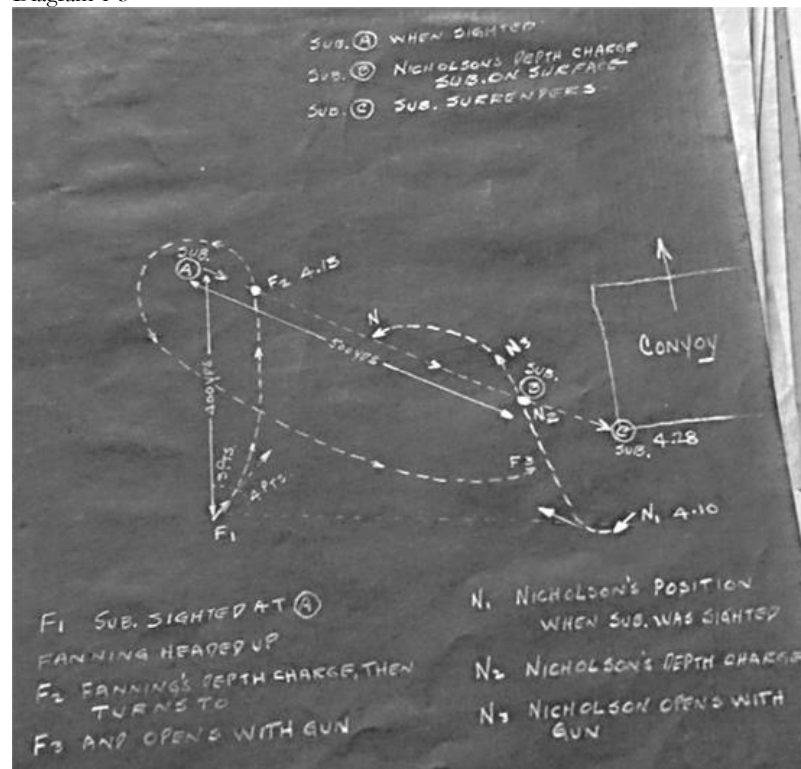 Diagram 1-8
SUB. Ⓐ WHEN SIGHTED
SUB. Ⓑ NICHOLSON'S DEPTH CHARGE
SUB. ON SURFACE
SUB. Ⓒ SUB. SURRENDERS
SUB.
Ⓐ
F2 4.13
N
N3
500 YDS
400 YDS
CONVOY
SUB.
Ⓑ
N2
Ⓒ
SUB. 4.28
F3
3 PTS
4 PTS
F1
N1 4.10
F1 SUB. SIGHTED AT Ⓐ
FANNING HEADED UP
F2 FANNING'S DEPTH CHARGE, THEN
TURNS TO
F3 AND OPENS WITH GUN
N1 NICHOLSON'S POSITION
WHEN SUB. WAS SIGHTED
N2 NICHOLSON'S DEPTH CHARGE
N3 NICHOLSON OPENS WITH
GUN